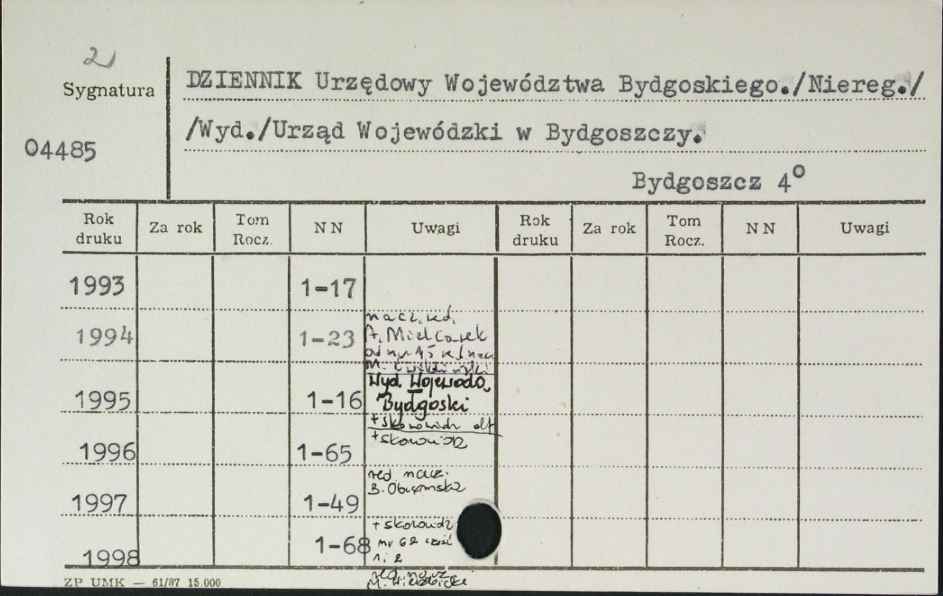 2
Sygnatura
04485
DZIENNIK Urzędowy Województwa Bydgoskiego./Niereg./
/Wyd./Urząd Wojewódzki w Bydgoszczy.
Bydgoszcz 4°
Rok druku Za rok Tom Rocz. NN Uwagi Rok druku Za rok Tom Rocz. NN Uwagi
1993 1-17
nacz. red.
1994 1-23 A. Mielcarek
od nr 15 red nacz
M.
Wyd. Wojewoda
1995 1-16 Bydgoski
+ skorowidz
+ skorowidz
1996 1-65
red nacz.
B.
1997 1-49
+ skorowidz
1998 1-68 nr 68 część
1 i 2
red. nacz.
M.
ZP UMK — 61/87 15.000